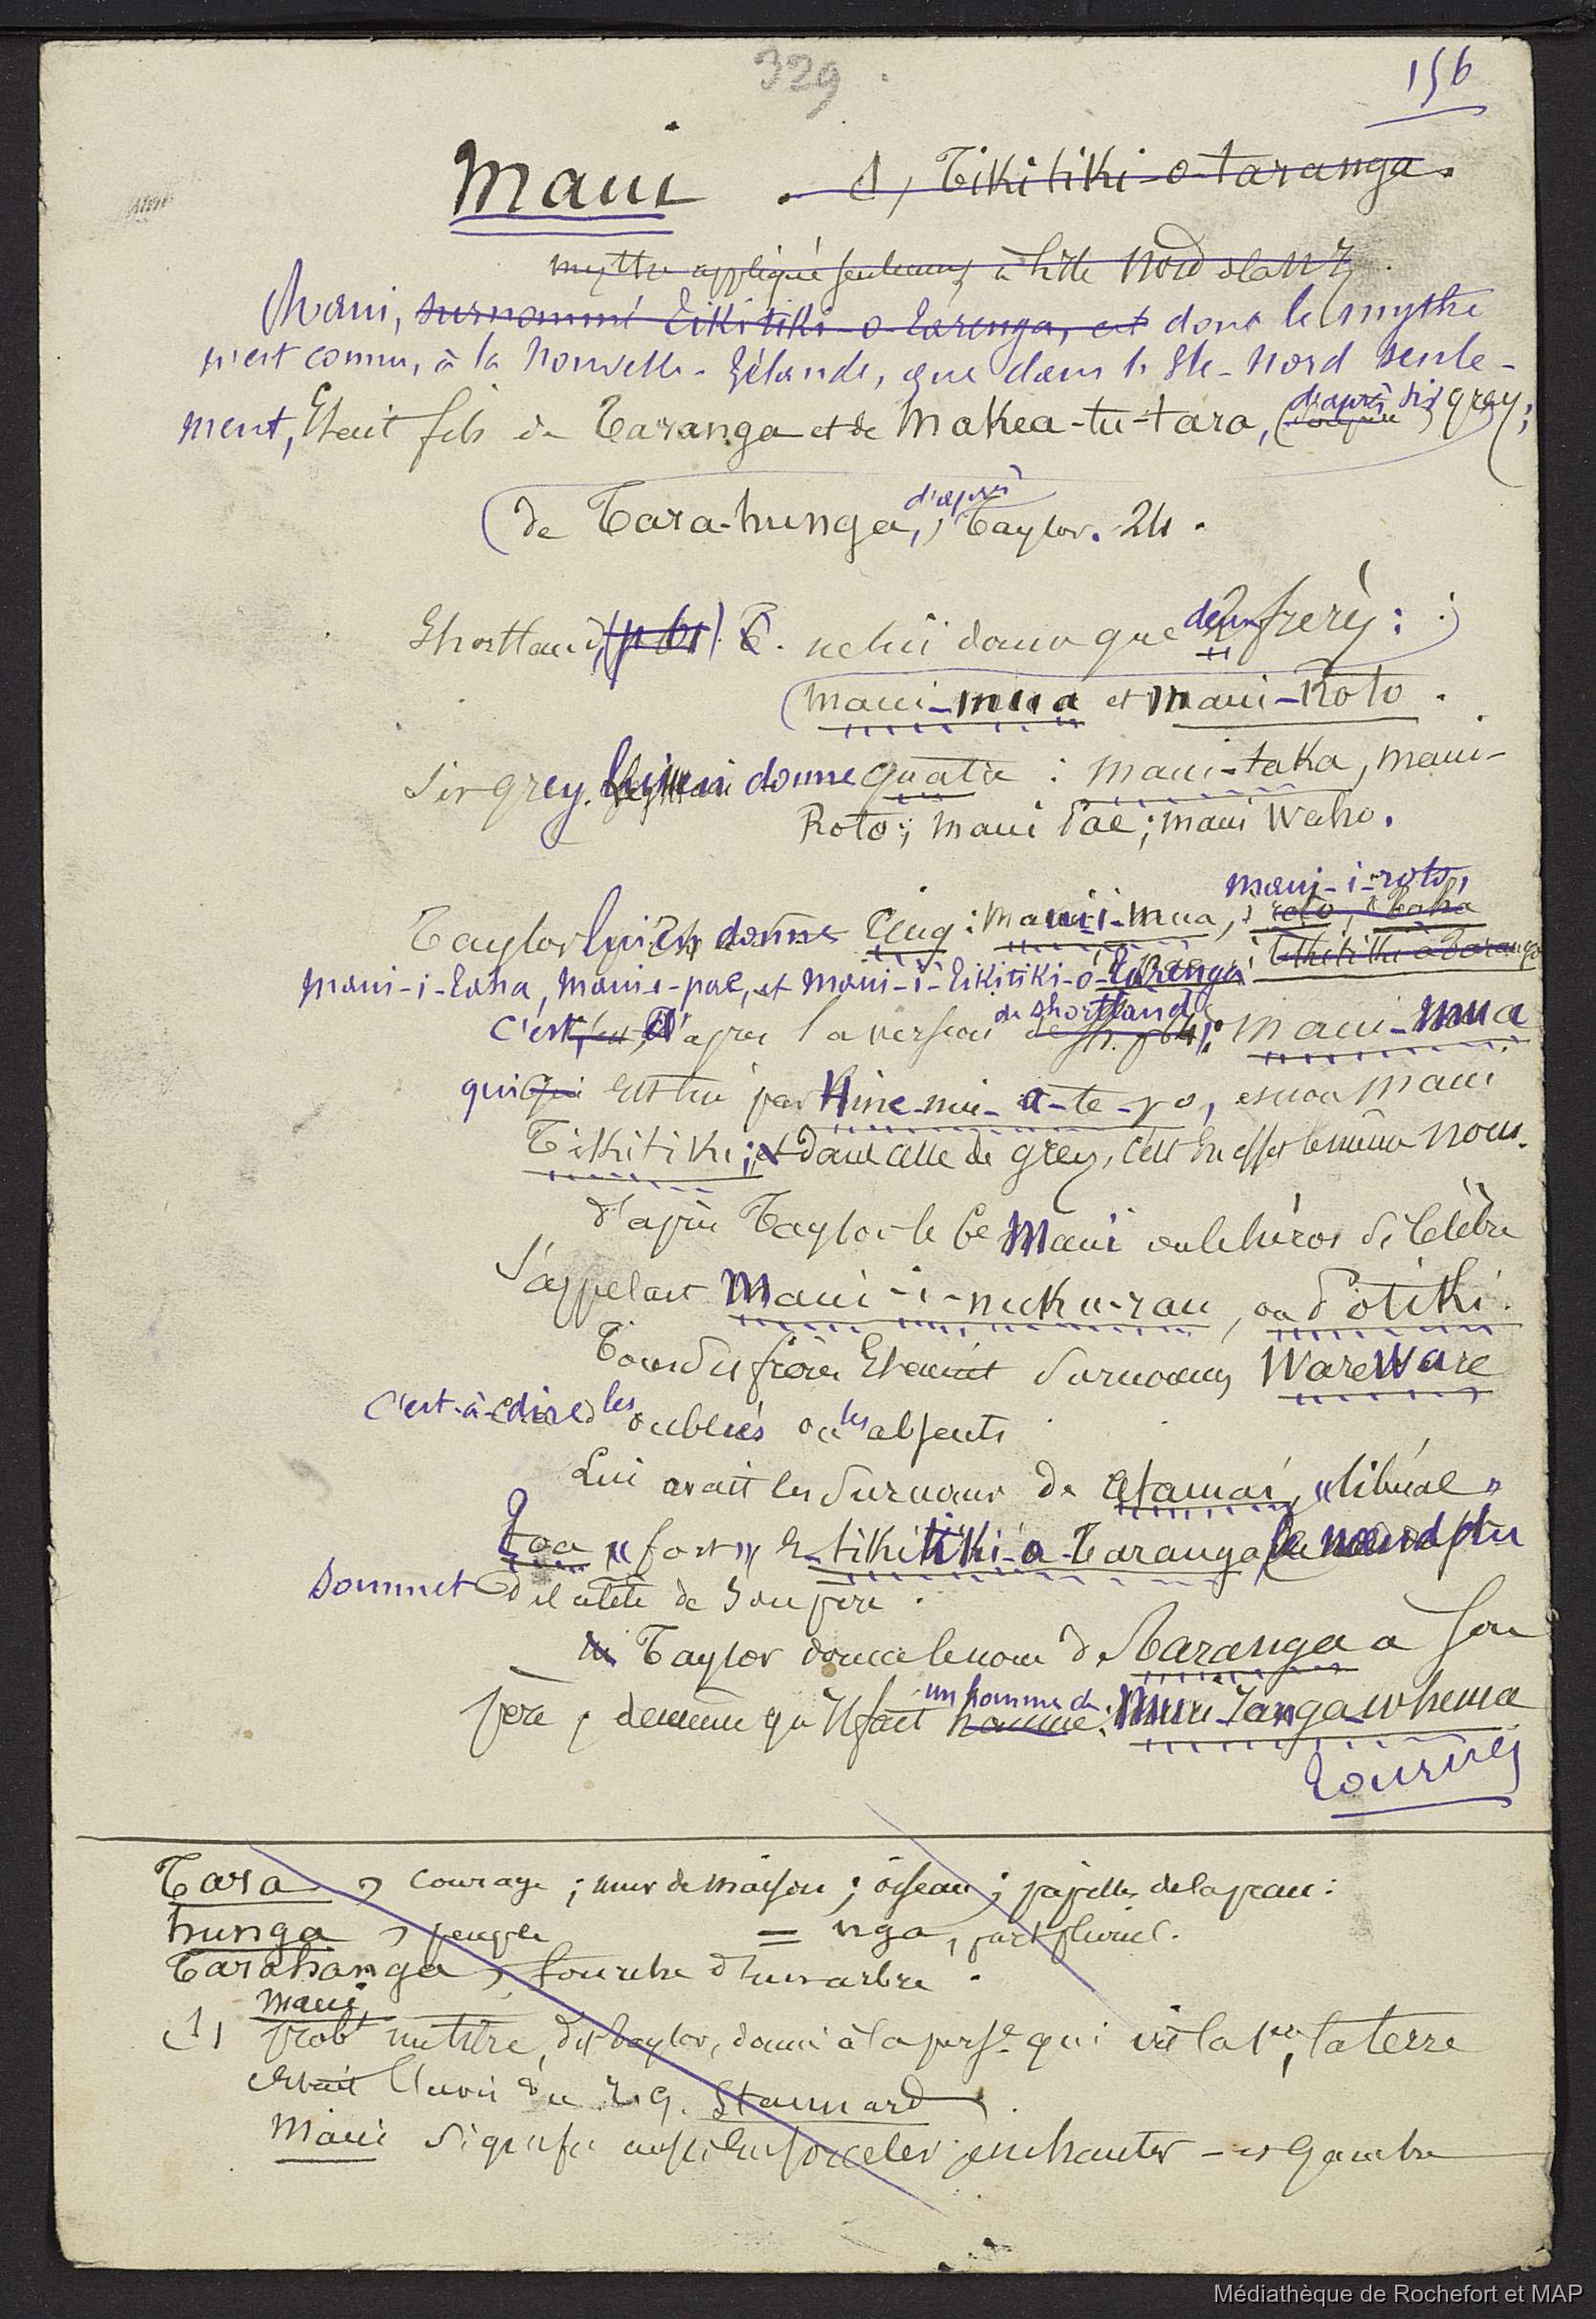 329.
156
Maui . 1, Tikitiki-o-taranga.
mythe appliqué seulement à l'île Nord de la NZ.
Maui, surnommé Tikitiki-o-Taranga, et dont le mythe
n'est connu, à la Nouvelle-Zélande, que dans l'Ile-Nord seule-
ment, Etait fils de Taranga et de Makea-tu-tara, (d'après Sir Grey;
de Tara-hunga, d'après Taylor. 24.
Shortland, ne lui donne que deux frères :
Maui-mua et Maui-Roto.
Sir Grey. lui en donne quatre : Maui-taka, Maui-
Roto; Maui Pae; Maui Waho.
Maui-i-roto,
Taylor lui en donne Cinq : Maui-i-mua, roto, Taha
Tikitiki o Taranga
Maui-i-Taha, Maui-i-pae, et Maui-i-Tikitiki-o-Taranga
C'est, d'après la version de Shortland, Maui-mua
qui est tué par Hine-nui-a-te-po, et non Maui
Tikitiki; et dans celle de Grey, c'est en effet le même nom.
d'après Taylor le 6e Maui ou le héros si célèbre
s'appelait Maui-i-nuku-rau, ou Potiki.
Tous ses frères Etaient surnommés WareWare
C'est-à-dire les oubliés ou les absents
Lui avait les surnoms de Atamai, "libéral"
Toa "fort" Et tikitiki-a-Taranga le nœud du
sommet de la tête de son père.
Taylor donne le nom de Taranga à son
père, de même qu'il fait un homme de Muri-Ranga-whenua
Tournez
Tara, courage ; mur de maison ; oiseau ; papilles de la peau :
hunga, peuple = nga, part. pluriel.
Tarahanga, fourche d'un arbre.
Maui,
(1) probt un titre, dit Taylor, donné à la persne qui vit la 1re, la terre
Stannard
Maui Signifie aussi Ensorceler, enchanter - et Gauche